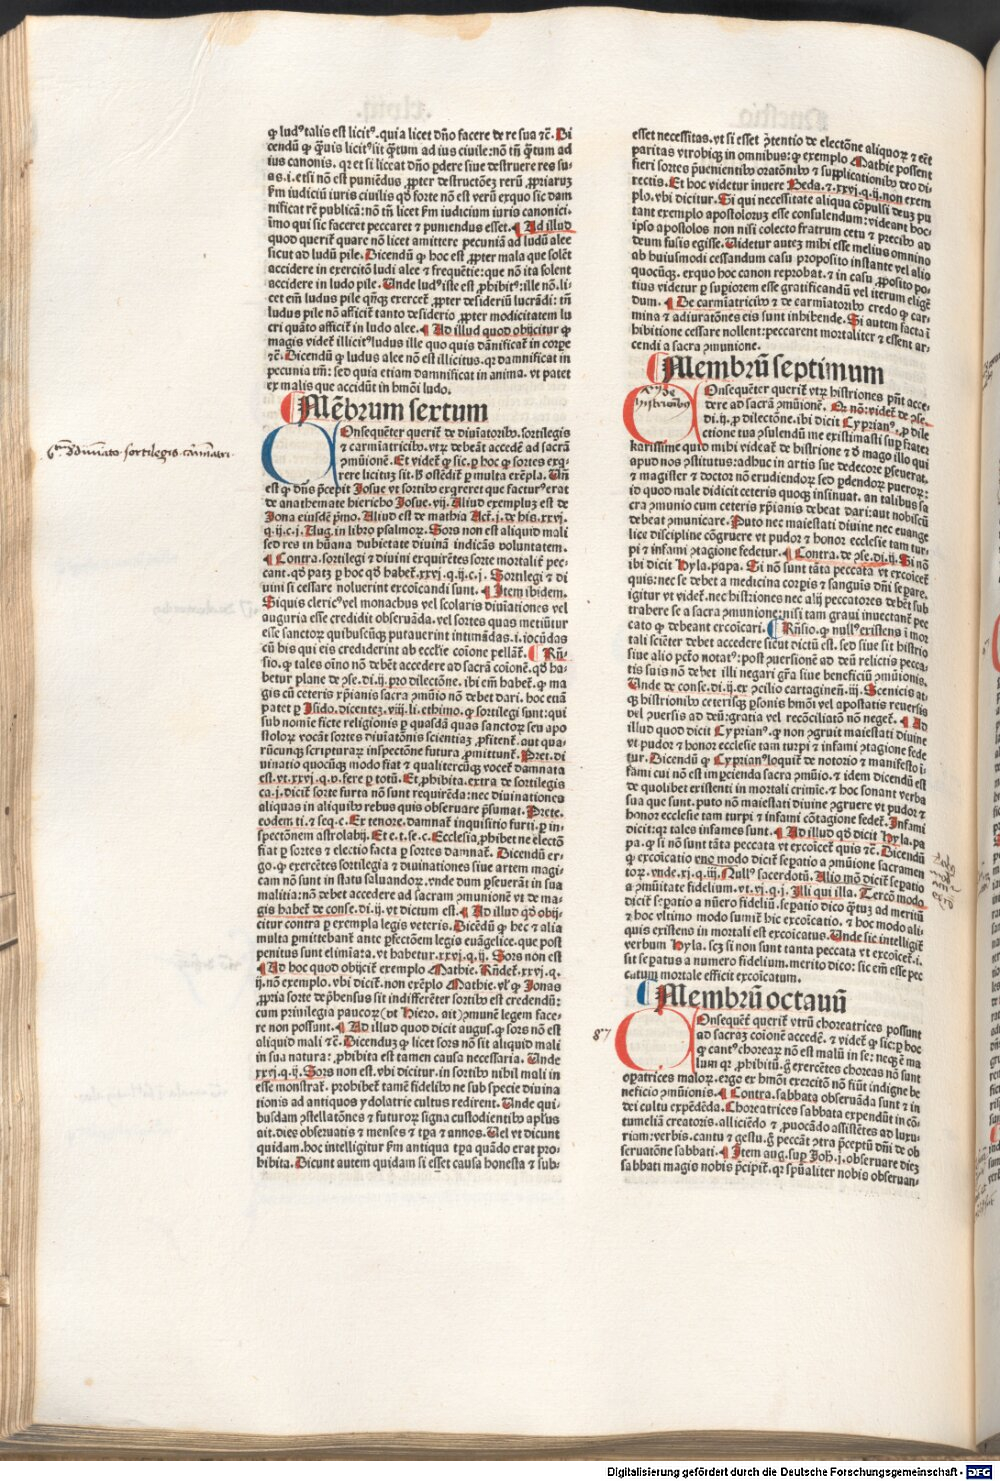 ꝙ lud⁹ talis est licit⁹. qui a licet dño facere de re sua ⁊c̃. Di
cendũ ꝙ q̃uis licit⁹ sit q̃tum ad ius ciuile: nõ tñ q̃tum ad
ius canonis. qꝛ et si liceat dño ꝑdere siue destruere res su/
as. i. etsi nõ est puniẽdus ꝓpter destructõeꝫ rerũ ꝓpriaruꝫ
fm iudiciũ iuris ciuilis qð forte nõ est verũ exquo sic dam
nificat rẽ publicã: nõ tñ licet fm iudicium iuris canonici.
imo qui sic faceret peccaret ⁊ puniendus esset. ¶ Ad illud
quod querit̃ quare nõ licet amittere pecuniã ad ludũ alee
sicut ad ludũ pile. Dicendũ ꝙ hoc est ꝓpter mala que solẽt
accidere in exercitõ ludi alee ⁊ frequẽtie: que nõ ita solent
accidere in ludo pile. Unde lud⁹ iste est ꝓhibit⁹: ille nõ. li/
cet em̃ ludus pile qñqꝫ exercet̃ ꝓpter desideriũ lucrãdi: tñ
ludus pile nõ afficit tanto desiderio ꝓpter modicitatem lu
cri quãto afficit in ludo alee. ¶ Ad illud quod obijcitur ꝙ
magis videt̃ illicit⁹ ludus ille quo quis dãnificat̃ in corꝑe
⁊c̃. Dicendũ ꝙ ludus alee nõ est illicitus. qꝛ damnificat in
pecunia tm̃: sed quia etiam damnificat in anima. vt patet
ex malis que accidũt in hmõi ludo.
Mẽbrum sextum
COnsequẽter querit̃ de diuiatoribꝰ. sortilegis
⁊ carmiatricibꝰ. vtꝝ debeãt accedẽ ad sacrã
ꝯmuionẽ. Et videt̃ ꝙ sic. ꝑ hoc ꝙ sortes exq̃/
rere licitũ sit. ħ ostẽdit̃ ꝑ multa exẽpla. Uñ
est ꝙ dñs p̃cepit Josue vt sortibꝰ exq̃reret que factur⁹ erat
de anathemate hiericho Josue. vij. Aliud exempluꝫ est de
Jona eiusdẽ p̃mo. Aliud est de mathia Act. j. de his. xxvj.
q. ij. c. j. Aug. in libro psalmoꝝ. Sors non est aliquid mali
sed res in hũana dubietate diuinã indicãs voluntatem.
¶ Contra. sortilegi ⁊ diuini exquirẽtes sorte mortalit̃ pec/
cant. qð patꝫ ꝑ hoc qð habet̃. xxvj. q. ij. c. j. Sortilegi ⁊ di
uini si cessare noluerint excoĩcandi sunt. ¶ Item ibidem.
Siquis cleric⁹ vel monachus vel scolaris diuiationes vel
auguria esse credidit obseruãda. vel sortes quas metiũtur
esse sanctoꝝ quibuscũqꝫ putauerint intimãdas. i. iocũdas
cũ his qui eis crediderint ab eccl̃ie coĩone pellãt̃. ¶ Rñ/
sio. ꝙ tales oĩno nõ debẽt accedere ad sacrã coĩonẽ. qð ha/
betur plane de ꝯse. di. ij. pro dilectõne. ibi em̃ habet̃. ꝙ ma
gis cũ ceteris xp̃ianis sacra ꝯmũio nõ debet dari. hoc etiã
patet ꝑ Isido. dicenteꝫ. viij. li. ethimo. ꝙ sortilegi sunt: qui
sub noĩe ficte religionis ꝑ quasdã quas sanctoꝝ seu apo
stoloꝝ vocãt sortes diuiatõnis scientiaꝫ ꝓfitent̃. aut qua/
rũcunqꝫ scripturaꝝ inspectõne futura ꝓmittunt̃. Pret. di
uinatio quocũqꝫ modo fiat ⁊ qualitercũqꝫ vocet̃ damnata
est. vt. xxvj. q. v. fere ꝑ totũ. Et ꝓhibita. extra de sortilegis
ca. j. dicit̃ sorte furta nõ sunt requirẽda: nec diuinationes
aliquas in aliquibꝰ rebus quis obseruare p̃sumat. Prete.
eodem ti. ⁊ seq. c. Ex tenore. damnat̃ inquisitio furti. ꝑ in/
spectõnem astrolabij. Et e. t. se. c. Ecclesia ꝓhibet ne electõ
fiat ꝑ sortes ⁊ electio facta ꝑ sortes damnat̃. Dicendũ er/
go. ꝙ exercẽtes sortilegia ⁊ diuinationes siue artem magi/
cam nõ sunt in statu saluandoꝝ. vnde dum ꝑseuerãt in sua
malitia: nõ debet accedere ad sacram ꝯmunionẽ vt de ma/
gis habet̃ de conse. di. ij. vt dictum est. ¶ Ad illud qð obij/
citur contra ꝑ exempla legis veteris. Dicẽdũ ꝙ hec ⁊ alia
multa ꝑmittebant̃ ante ꝑfectõem legis euãgelice. que post
penitus sunt elimĩata. vt habetur. xxvj. q. ij. Sors non est
¶ Ad hoc quod obijcit̃ exemplo Mathie. Rñdet̃. xxvj. q.
ij. nõ exemplo. vbi dicit̃. non exẽplo Mathie. vl̃ ꝙ Jonas
ꝓpria sorte dep̃hensus sit indifferẽter sortibꝰ est credendũ:
cum priuilegia paucoꝝ (vt Hiero. ait) ꝯmunẽ legem face/
re non possunt. ¶ Ad illud quod dicit augus. ꝙ sors nõ est
aliquid mali ⁊c̃. Dicenduꝫ ꝙ licet sors nõ sit aliquid mali
in sua natura: ꝓhibita est tamen causa necessaria. Unde
xxvj. q. ij. Sors non est. vbi dicitur. in sortibꝰ nihil mali in
esse monstrat̃. prohibet̃ tamẽ fidelibꝰ ne sub specie diuina
tionis ad antiquos ydolatrie cultus redirent. Unde qui/
busdam ꝯstellatõnes ⁊ futuroꝝ signa custodientibꝰ apl̃us
ait. dies obseruatis ⁊ menses ⁊ tp̃a ⁊ annos. Uel vt dicunt
quidam. hoc intelligitur fm antiqua tp̃a quãdo erat pro/
hibita. Dicunt autem quidam si esset causa honesta ⁊ sub/
6ᵐ
esset necessitas. vt si esset ꝯtentio de electõne aliquoꝝ ⁊ eẽt
paritas vtrobiqꝫ in omnibus: ꝙ exemplo Mathie possent
fieri sortes p̃uenientibꝰ oratõnibꝰ ⁊ supplicationibꝰ deo di
rectis. Et hoc videtur inuere Beda. ⁊. xxvj. q. ij. non exem
plo. vbi dicitur. Si qui necessitate aliqua cõpulsi deuꝫ pu
tant exemplo apostoloruꝫ esse consulendum: videant hoc
ipso apostolos non nisi colecto fratrum cetu ⁊ precibꝰ ad
deum fusis egisse. Uidetur auteꝫ mihi esse melius omnino
ab huiusmodi cessandum casu proposito instante vel alio
quocũqꝫ. exquo hoc canon reprobat. ⁊ in casu ꝓposito po/
tius videtur ꝑ suꝑiorem esse gratificandũ vel iterum eligẽ
dum. ¶ De carmĩatricibꝰ ⁊ de carmiatoribꝰ credo ꝙ car/
mina ⁊ adiuratõnes eis sunt inhibende. Si autem facta ĩ
hibitione cessare nollent: peccarent mortaliter ⁊ essent ar/
cendi a sacra ꝯmunione.
Membrũ septimum
COnsequẽter querit̃ vtꝝ histriones pñt acce/
dere ad sacrã ꝯmũionẽ. Et nõ: videt̃ de ꝯse.
di. ij. ꝓ dilectõne. ibi dicit Cyprian⁹. ꝓ dile
ctione tua ꝯsulendũ me existimasti sup̃ frater
karissime quid mihi videat̃ de histrionibꝰ ⁊ ð mago illo qui
apud nos ꝯstitutus: adhuc in artis sue dedecore ꝑseuerat.
⁊ magister ⁊ doctor nõ erudiendoꝝ sed ꝑdendoꝝ pueroꝝ:
id quod male didicit ceteris quoqꝫ insinuat. an talibus sa
cra ꝯmunio cum ceteris xp̃ianis debeat dari: aut nobiscũ
debeat ꝯmunicare. Puto nec maiestati diuine nec euange
lice discipline cõgruere vt pudor ⁊ honor ecclesie tam tur/
pi ⁊ infami ꝯtagione fedetur. ¶ Contra. de ꝯse. di. ij. Si nõ
ibi dicit Hyla. papa. Si non sunt tãta peccata vt excoĩcet̃
quis: nec se debet a medicina corꝑis ⁊ sanguis dñi seꝑare.
igitur vt videt̃. nec histriones nec alij peccatores debẽt sub
trahere se a sacra ꝯmunione: nisi tam graui inuectant̃ pec
cato ꝙ debeant excoĩcari. ¶ Rñsio. ꝙ null⁹ existens ĩ mor
tali sciẽter debet accedere sicut dictũ est. sed siue sit histrio
siue alio pctõ notat⁹: post ꝯuersionẽ ad deũ relictis pecca/
tis suis nõ debet illi negari gr̃a siue beneficiũ ꝯmũionis.
Unde de conse. di. ij. ex ꝯcilio cartaginen̄. iij. Scenicis at/
qꝫ histrionibꝰ ceterisqꝫ ꝑsonis hmõi vel apostatis reuersis
vel ꝯuersis ad deũ: gratia vel recõciliatõ nõ neget̃. ¶ Ad
illud quod dicit Cyprian⁹. ꝙ non ꝯgruit maiestati diuine
vt pudor ⁊ honor ecclesie tam turpi ⁊ infami ꝯtagione fede
tur. Dicendũ ꝙ Cyprian⁹ loquit̃ de notorio ⁊ manifesto ĩ
fami cui nõ est imꝑcienda sacra ꝯmũio. ⁊ idem dicendũ est
de quolibet existenti in mortali crimĩe. ⁊ hoc sonant verba
sua que sunt. puto nõ maiestati diuine ꝯgruere vt pudor ⁊
honor ecclesie tam turpi ⁊ infami cõtagione fedet̃. Infami
dicit: qꝛ tales infames sunt. ¶ Ad illud qð dicit Hyla. pa
pa. ꝙ si nõ sunt tãta peccata vt excoĩcet̃ quis ⁊c̃. Dicendũ
ꝙ excoĩcatio vno modo dicit̃ seꝑatio a ꝯmũione sacramen
toꝝ. vnde. xj. q. iij. Null⁹ sacerdotũ. Alio mõ dicit̃ seꝑatio
a ꝯmũitate fidelium. vt. vj. q. j. Illi qui illa. Tercõ modo
dicit̃ seꝑatio a nũero fideliũ. seꝑatio dico q̃tuꝫ ad meritũ
⁊ hoc vltimo modo sumit̃ hic excoĩcatio. ⁊ hoc modo ali/
quis existens in mortali est excoĩcatus. Unde sic intelligit̃
verbum Hyla. scꝫ si non sunt tanta peccata vt excoĩcet̃. i.
sit seꝑatus a numero fidelium. merito dico: sic em̃ esse pec
catum mortale efficit excoĩcatum.
Membrũ octauũ
87
COnsequẽt̃ querit̃ vtrũ choreatrices possunt
ad sacraꝫ coĩonẽ accedẽ. ⁊ videt̃ ꝙ sic: ꝑ hoc
ꝙ cant⁹ choreaꝝ nõ est malũ in se: neqꝫ ẽ ma
lum qꝛ ꝓhibitũ. g̃ exercẽtes choreas nõ sunt
oꝑatrices maloꝝ. ergo ex hmõi exercitõ nõ fiũt indigne be
neficio ꝯmũionis. ¶ Contra. sabbata obseruãda sunt ⁊ in
dei cultu expẽdẽda. Choreatrices sabbata expendũt in cõ/
tumeliã creatoris. alliciẽdo ⁊ ꝓuocãdo assistẽtes ad luxu/
riam: verbis. cantu ⁊ gestu. g̃ peccãt ꝯtra p̃ceptũ dñi de ob
seruatõne sabbati. ¶ Item aug. sup̃ Joh̃. j. obseruare dieꝫ
sabbati magis nobis p̃cipit̃. qꝛ spũaliter nobis obseruan/
Digitalisierung gefördert durch die Deutsche Forschungsgemeinschaft - DFG